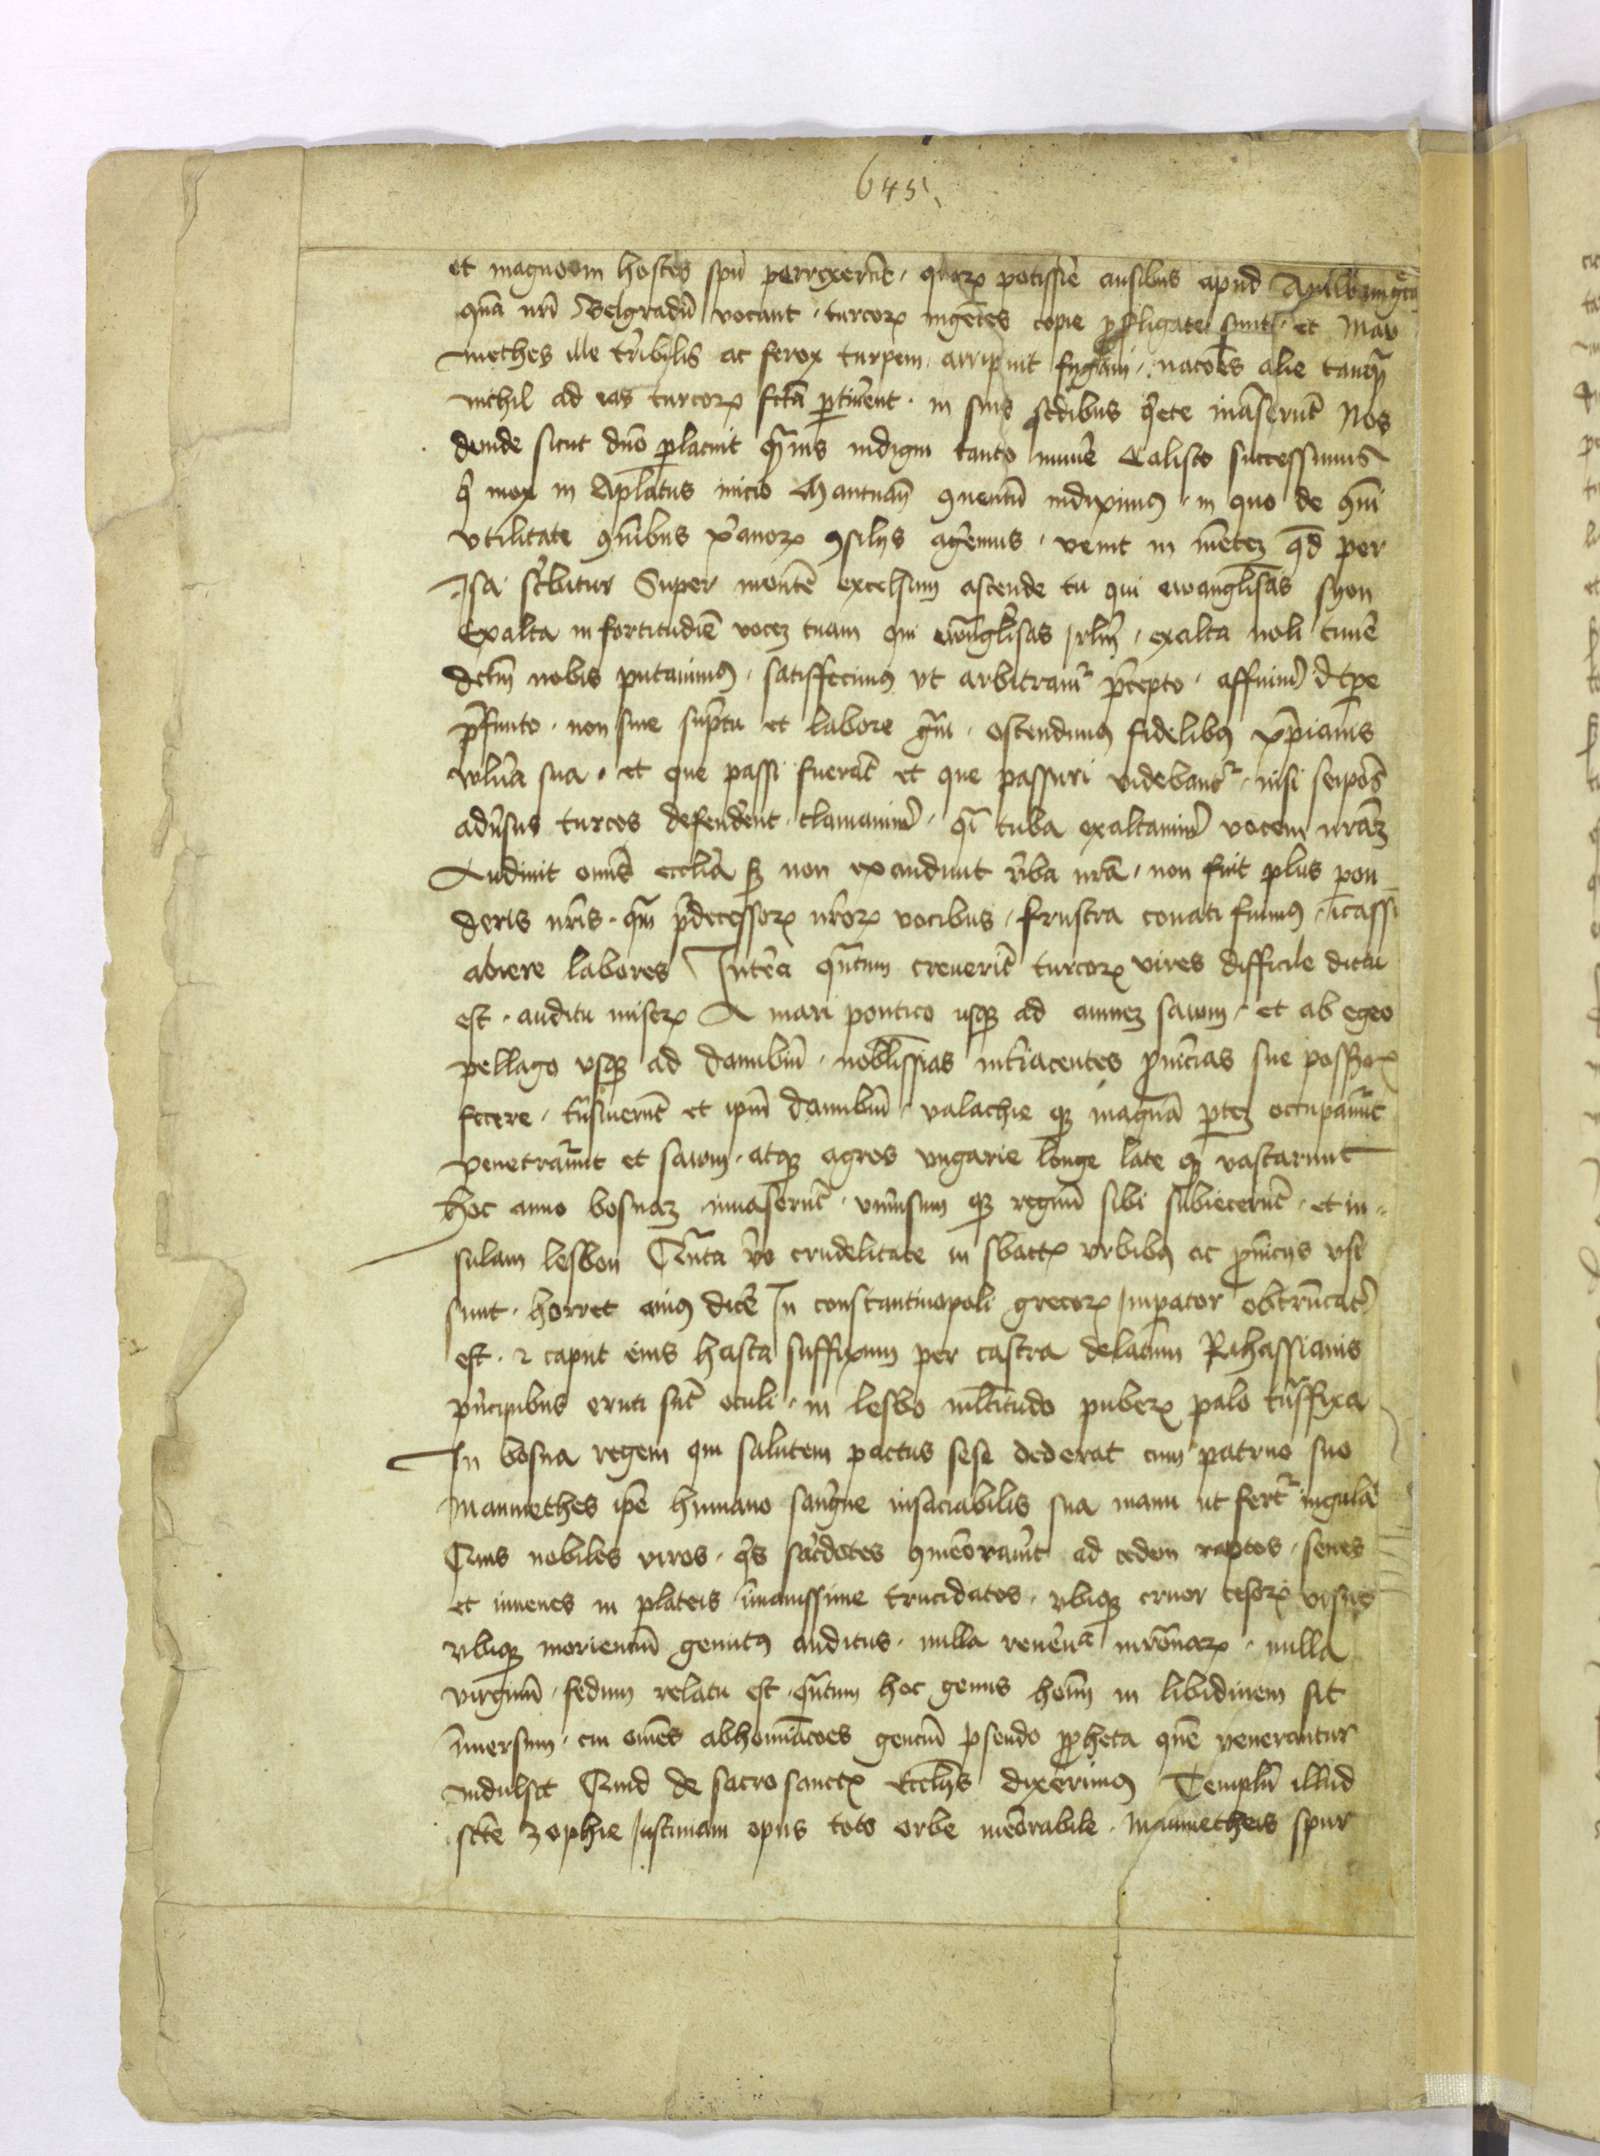 645
et magno in hostes spū perrexerūt · quoꝝ potissiē ausibus apud
quā nrī Belgradū vocant · turcoꝝ ingētes copie ꝓfligate sunt · et Mav
methes ille t'ribilis ac ferox turpem arripuit fugam · nacōes alie tanqȝ
nichil ad eas turcoꝝ fctā ꝑtinēent · in suis sedibus q'ete māserūt Nos
deinde sicut dnō placuit qȝuis indigni tanto mun'e Calisto successimus
q' mox in Aplatus inicio Mantuanū ꝯuentū indiximꝰ · in quo de ꝯmi
vtilitate ꝯmībus xp'anoꝝ ꝯsilijs ag'emus · venit in mētēȝ qd per
Isai sc'bitur Super montē excelsum ascende tu qui ewanglisas syon
Exalta in fortitudiē vocēȝ tuam qui ewāglisas irlm̄ · exalta noli tim'e
dctm̄ nobis putauimꝰ · satisffecimꝰ vt arbitramᷣ p̄cepto · affuimꝰ
p̄finito · non sine sūptu et labore gᷓui · ostendimꝰ fidelibꝰ xp̄ianis
wln'a sua · et que passi fuerāt et que passuri videbantᷣ · nisi seipōs
adūsus turcos defend'ent · clamauimꝰ · qᷓi tuba exaltauimꝰ vocem nr̄āȝ
Audiuit om̄is eccl'ia sȝ non exaudiuit v'ba nrā · non fuit plus pon
deris nr̄is · qᷓm p̄decessoꝝ nr̄oꝝ vocibus · frustra conati fuimꝰ · īcassū
abiere labores Int'ea qᷓntum creuerīt turcoꝝ vires difficile dictu
est · auditu miseꝝ A mari pontico vsqȝ ad amnēȝ sawm · et ab egeo
pellago vsqȝ ad danubiū · nobilissīas int'iacentes ꝓuincias sue
fecere · tn̄siuerūt et ipm̄ danubiū · valachie qȝ magnā ꝑtēȝ occupauᷓnt
penetrauᷓnt et sawm · atqȝ agros vngarie longe late qȝ vastarunt
hoc anno bosnāȝ inuaserūt · vniūsum qȝ regnū sibi subiecerūt · et in-
sulam lesbon Quāta v'o crudelitate in sbactꝭ vrbibꝰ ac ꝓuincijs vsi
sunt · horret animꝰ dic'e In constantinopoli grecoꝝ impator obtrūcatꝰ
est · ⁊ caput eius hasta suffixum per castra delatum Rihassianis
p'ncipibus eruti sūt oculi · in lesbo mltitudo puberꝝ palo tn̄sfixa
In bosna regem qui salutem pactus sese dederat cum patruo suo
Maumethes ipē humano sangne insaciabilis sua manu ut fertᷣ iugulaꝰ
Quis nobiles viros · q's sac'dotes ꝯmēorauᷣit ad cedem raptos · senes
et iuuenes in plateis īmanissime trucidatos · vbiqȝ cruor cesoꝝ visus
vbiqȝ morienciū gemitꝰ auditus · nulla reuēncia mrōnaꝝ · nulla
virginū · fedum relatu est · qᷓntum hoc genus hoīm in libidinem sit
īmersum · cui om̄es abhomiacōes genciū pseudo ꝓpheta quē venerantur
indulsit Quid de sacrosanctꝭ eccl'ijs dixerimꝰ Templū illud
scte zophie Iustiniani opus toto orbe mēorabile · Maumetheis spur